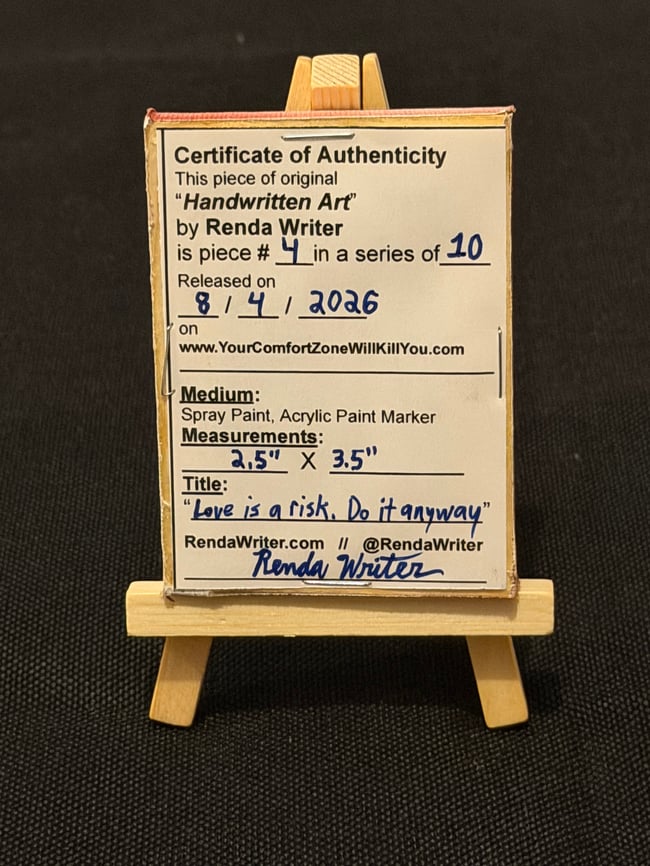 Certificate of Authenticity
This piece of original
“Handwritten Art”
by Renda Writer
is piece # 4 in a series of 10
Released on
8 / 4 / 2026
on
www.YourComfortZoneWillKillYou.com
Medium:
Spray Paint, Acrylic Paint Marker
Measurements:
2.5" X 3.5"
Title:
“Love is a risk. Do it anyway”
RendaWriter.com // @RendaWriter
Renda Writer